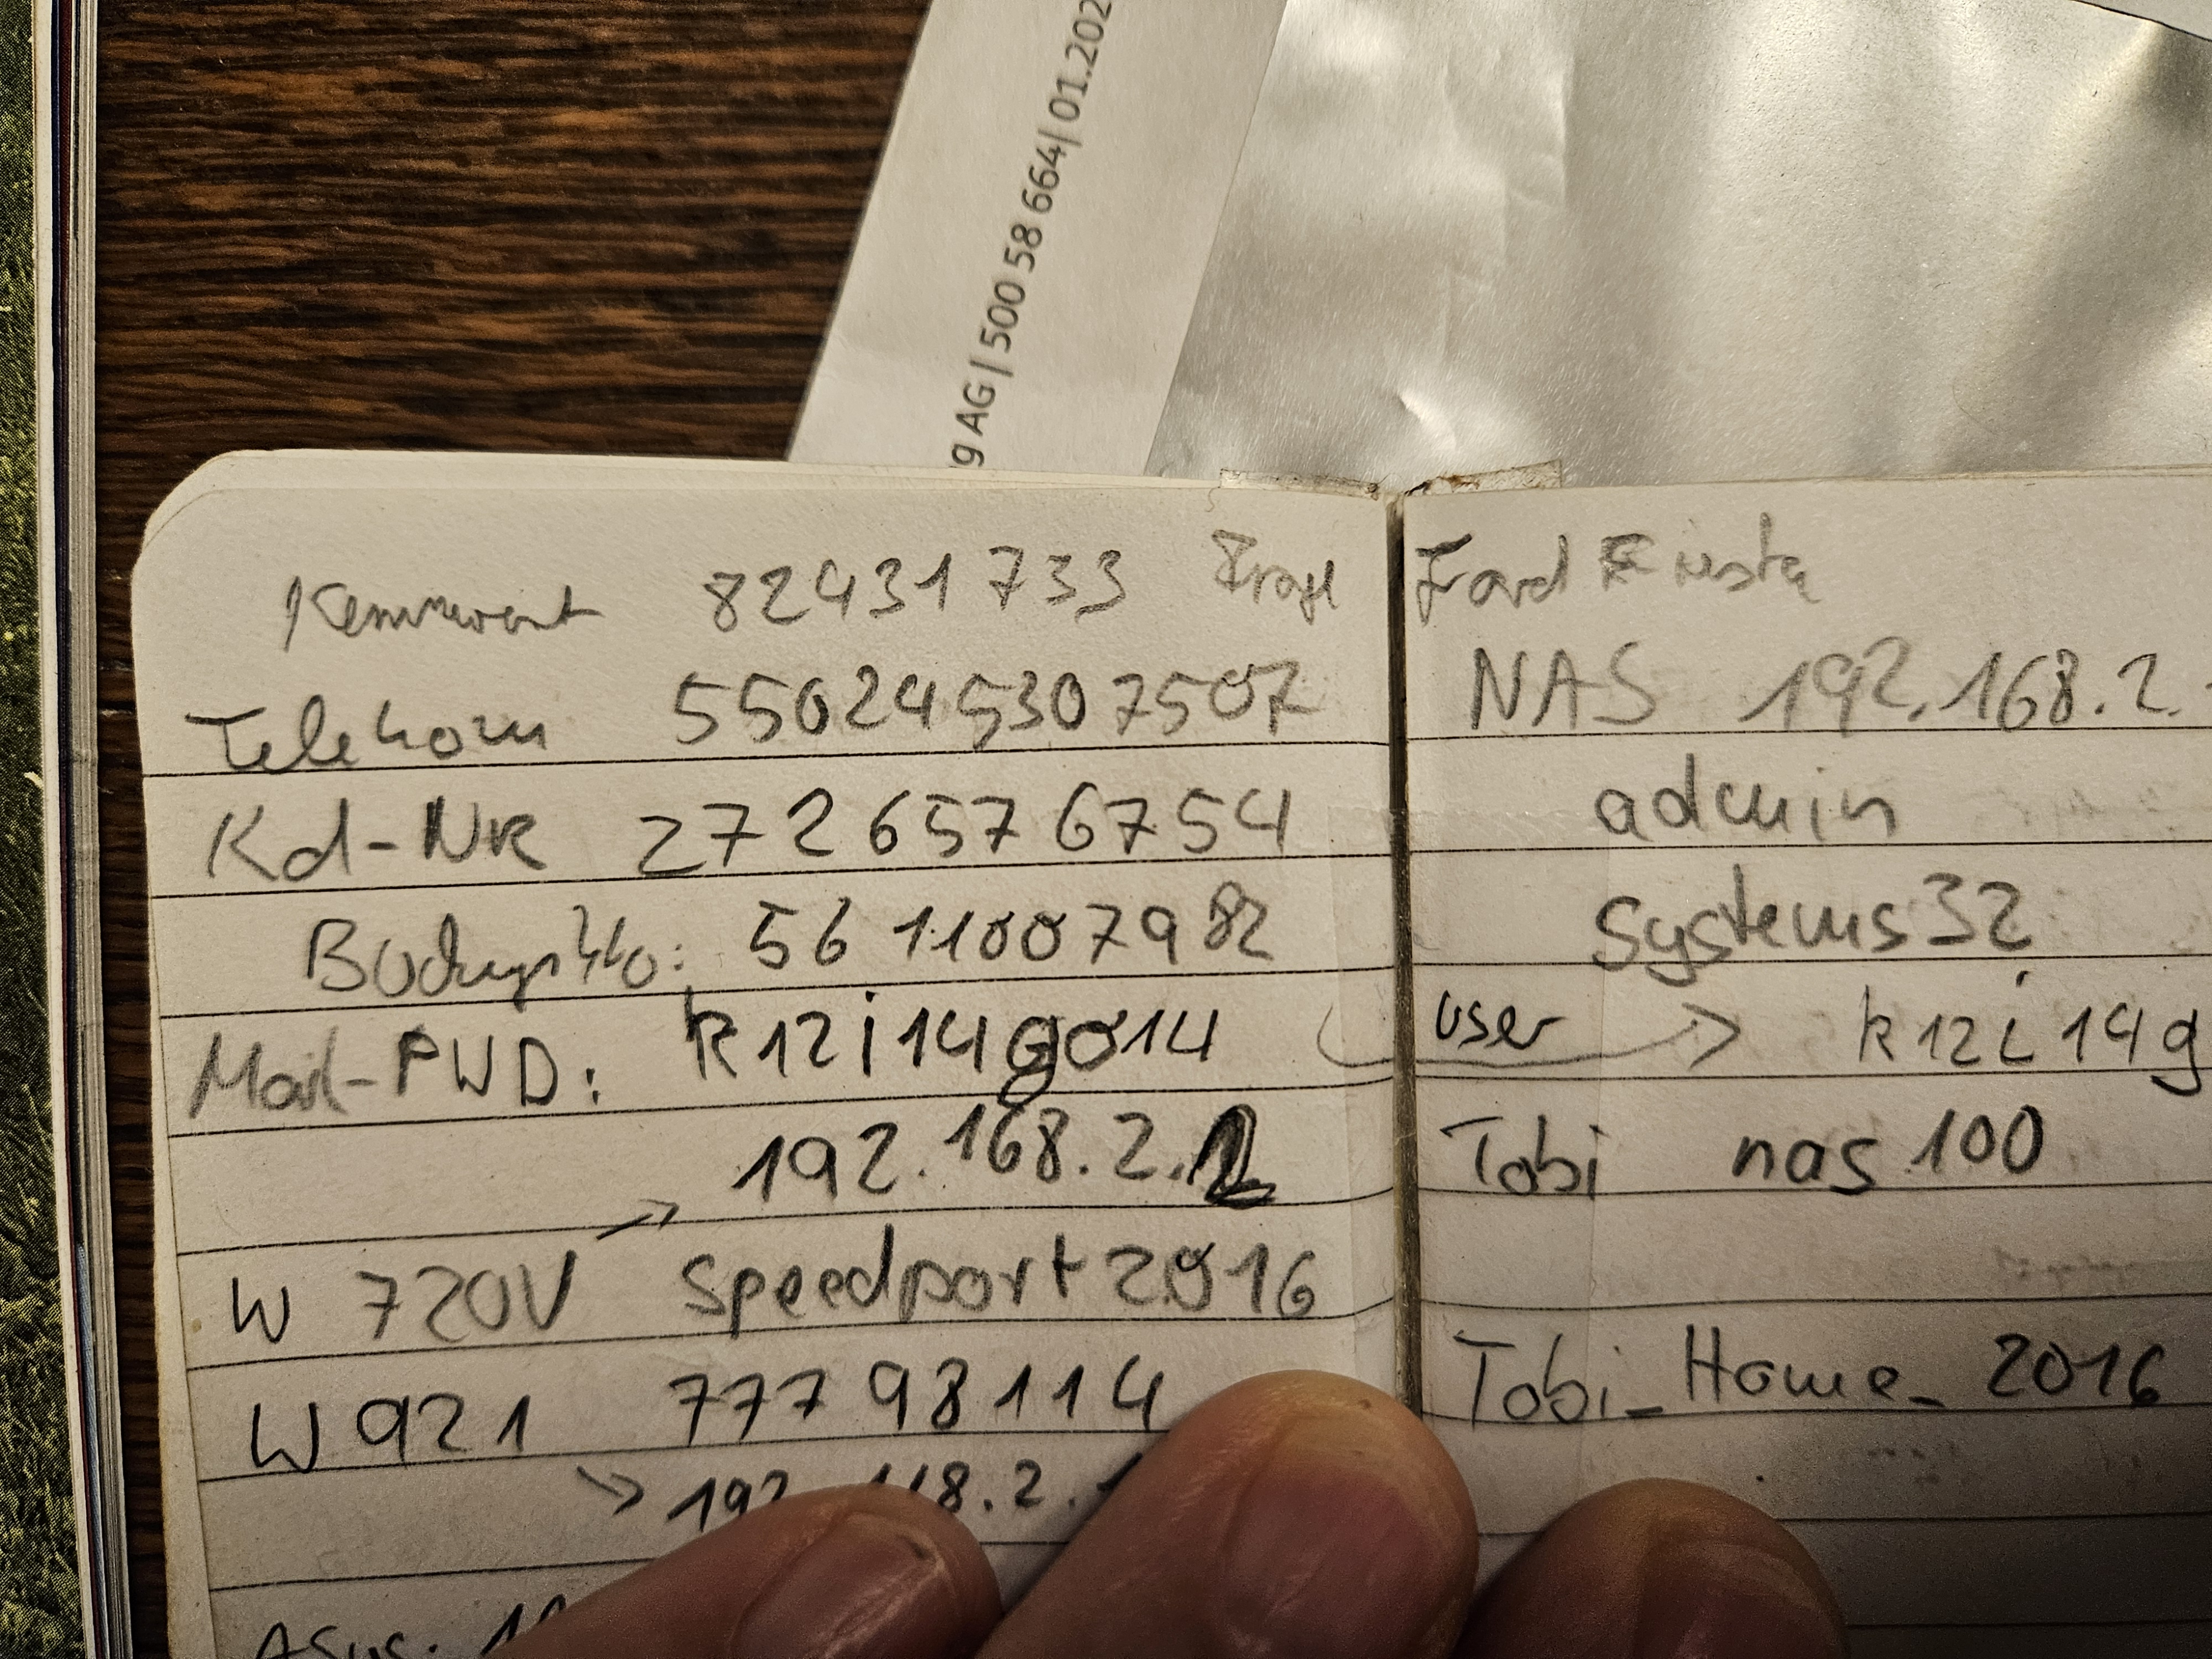 g AG | 500 58 664 | 01.202
Kennwort 82431733 Frage
Telekom 550245307507
Kd-NR 2726576754
Buchungskto: 5611007982
Mail-PWD: k12i14go14
192.168.2.2
→
W 720V Speedport2016
W921 77798114
→ 192.168.2.1
Asus: 19
Ford Fiesta
NAS 192.168.2.
admin
Systems32
user → k12i14g
Tobi nas100
Tobi_Home_2016